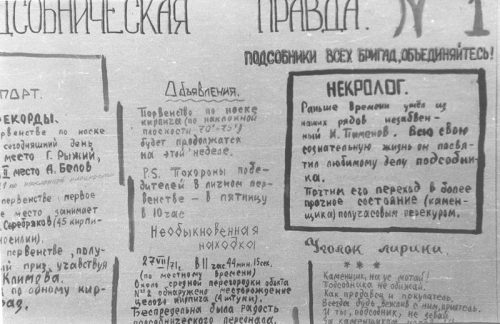 ДСОБНИЧЕСКАЯ ПРАВДА. N 1
ПОДСОБНИКИ ВСЕХ БРИГАД, ОБЪЕДИНЯЙТЕСЬ!
ПОРТ.
ЕКОРДЫ.
рвенство по носке
сегодняшний день
место Г. Рыжий,
II место А. Белов
первенстве первое
ое место занимает
Серебряков (45 кирпи-
носилки).
первенстве, полу-
й приз, учавствуя
Климова.
по одному кир-
рад.
Объявления.
Первенство по носке
кирпича (по наклонной
плоскости 70°-75°)
будет продолжатся
на этой неделе.
P.S. Похороны побе-
дителей в личном пер-
венстве – в пятницу
в 10 час
Необыкновенная
находка
27 VII/71г. в 11 час 44 мин. 15 сек.
(по местному времени)
Около средней перегородки объекта
№2 обнаружено месторождение
целого кирпича (4 штуки).
Беспредельна была радость
подсобнического персонала.
НЕКРОЛОГ.
Раньше времени ушёл из
наших рядов незабвен-
ный И. Пименов. Всю свою
сознательную жизнь он посвя-
тил любимому делу подсобни-
ка.
Почтим его переход в более
прочное состояние (камен-
щика) получасовым перекуром.
Уголок лирики
* * *
Каменщик, на ус мотай!
Подсобника не обижай.
Как продавец и покупатель,
Всегда будь вежлив с ним, приятель.
И ты, подсобник, не зевай,
За каменщиком